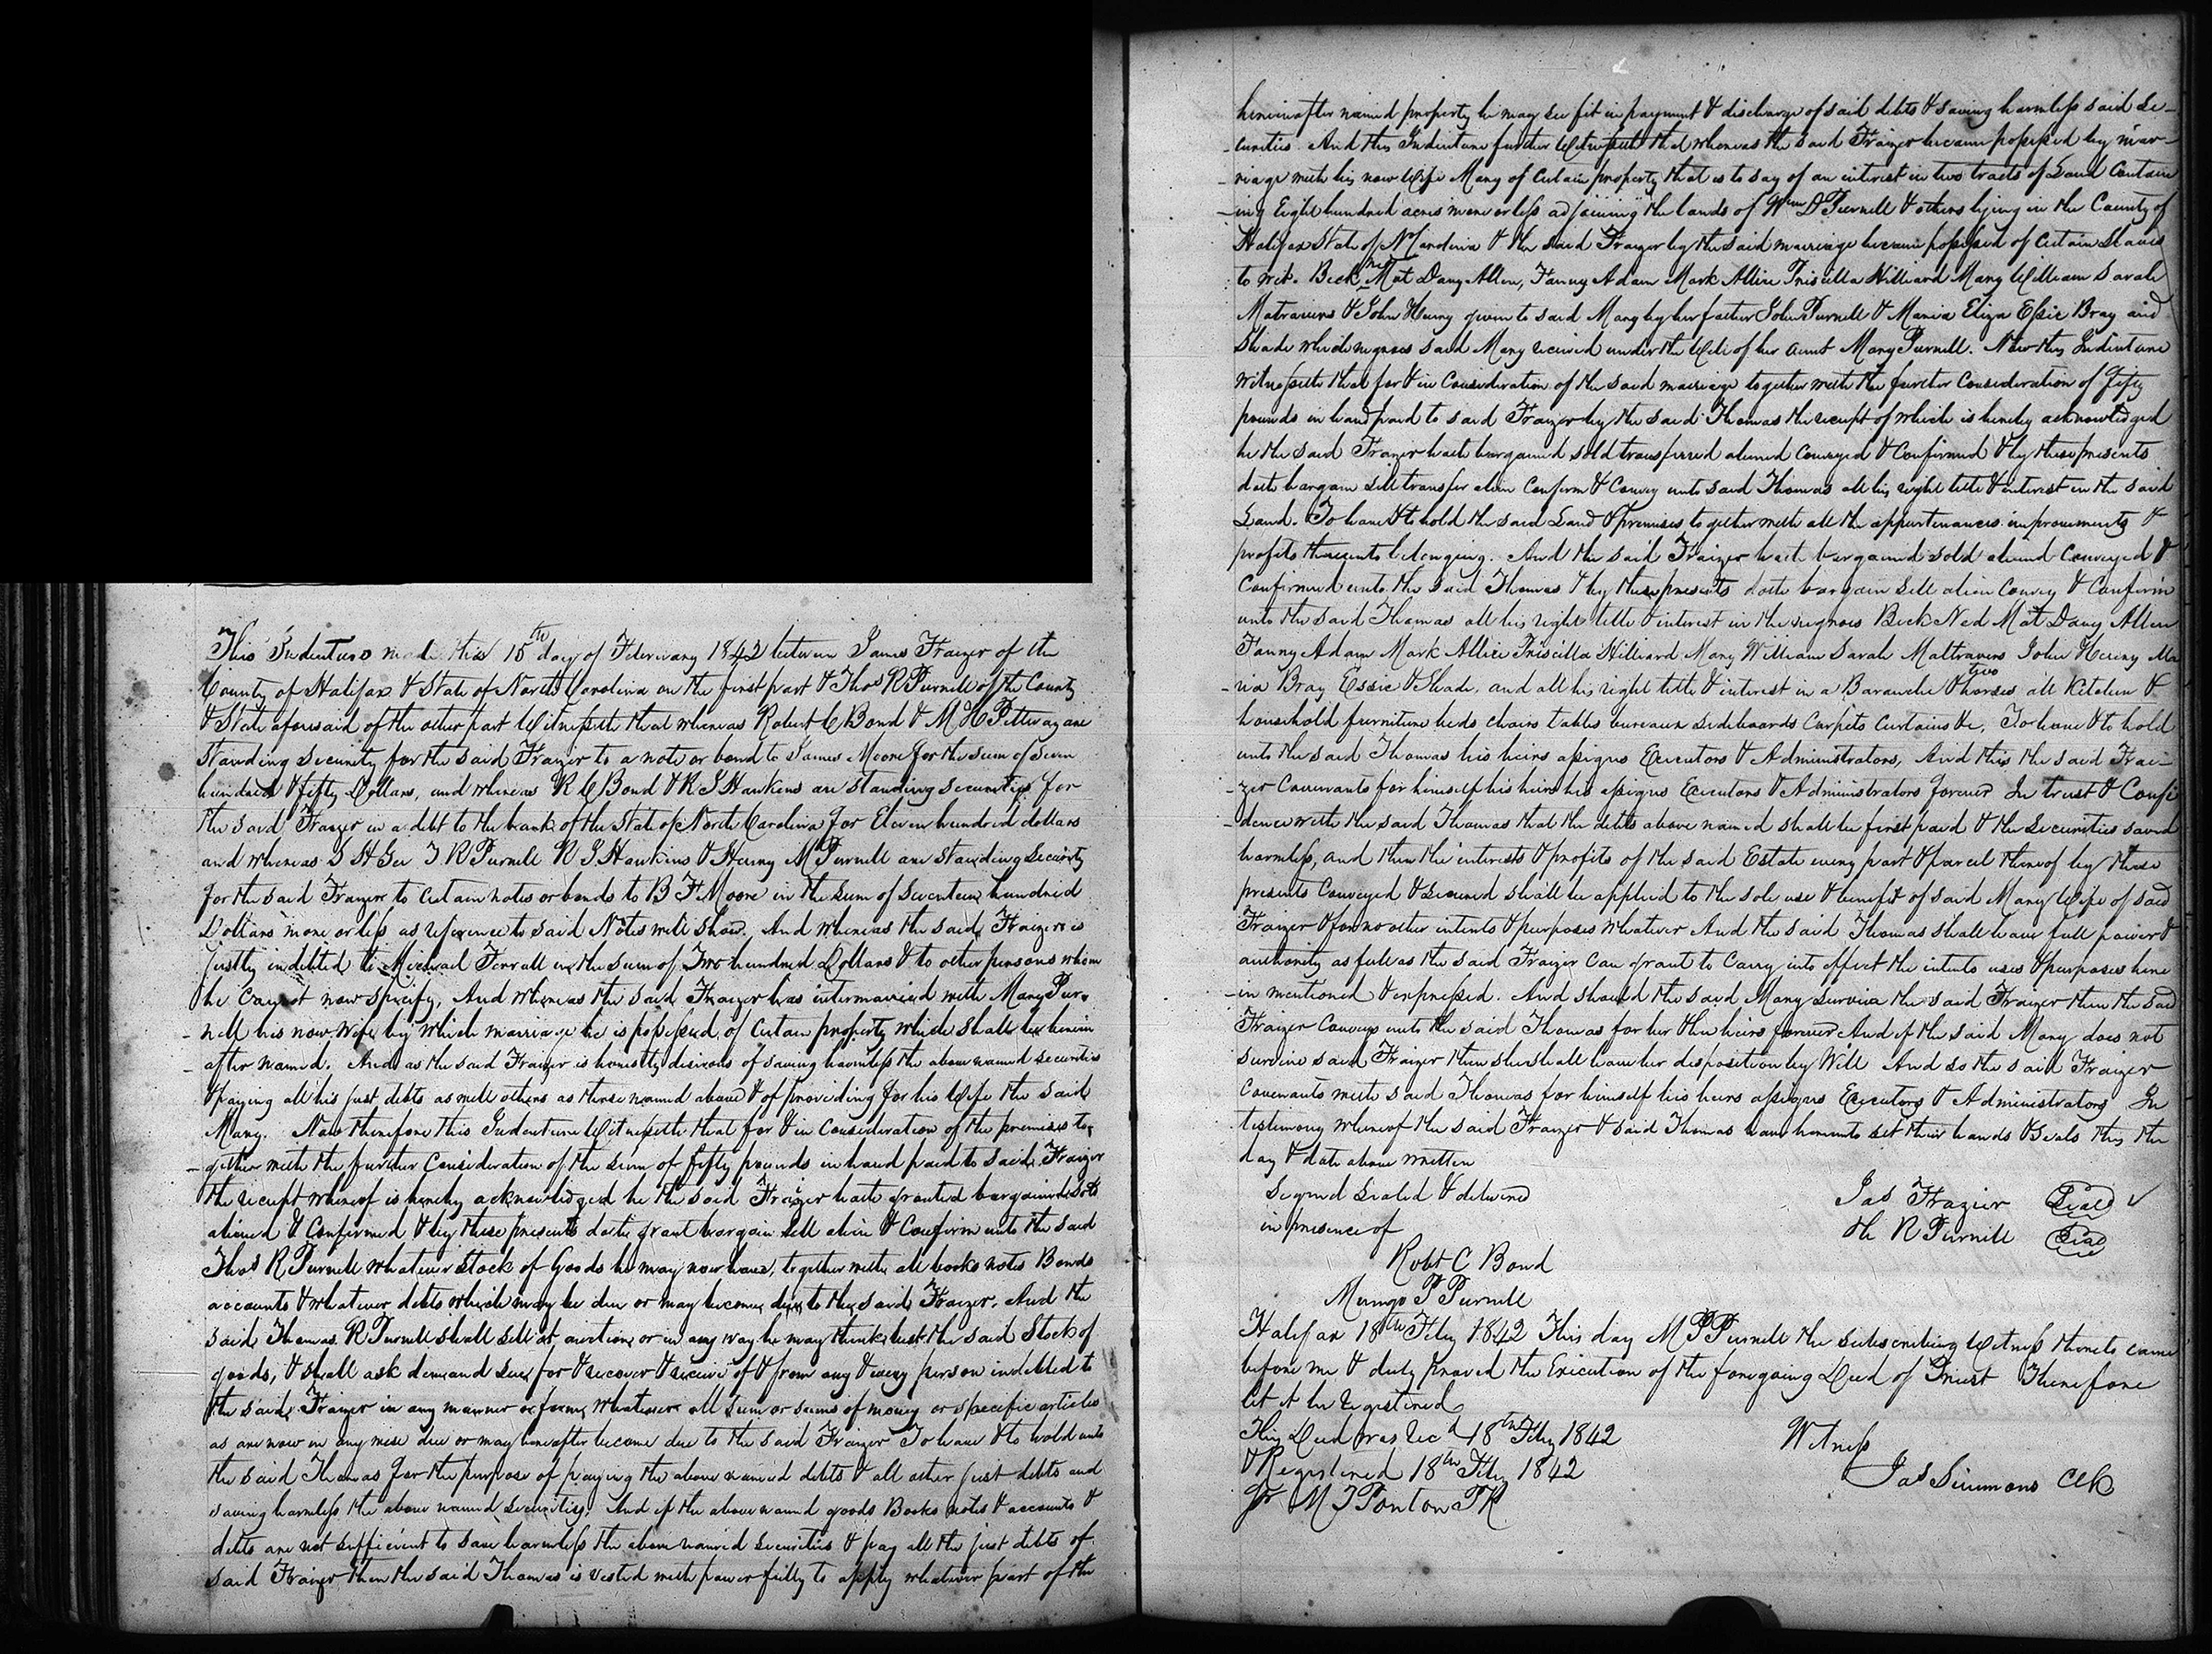 This Indenture made this 15th day of February 1842 between James Frazer of the
County of Halifax & State of North Carolina on the first part & Thos R Purnell of the County
& State aforesaid of the other part Witnesseth that whereas Robert C Bond & M H Pettway are
standing security for the said Frazer to a note or bond to James Moore for the sum of seven
hundred & fifty Dollars, and whereas R C Bond & R S Hawkins are standing securities for
the said Frazer in a debt to the bank of the State of North Carolina for Eleven hundred dollars
and whereas S H Gee T R Purnell R S Hawkins & Henry M Purnell are standing security
for the said Frazer to certain notes or bonds to B F Moore in the sum of seventeen hundred
Dollars more or less as reference to said Notes will show. And whereas the said Frazer is
justly indebted to Michael Ferrall in the sum of Two hundred Dollars & to other persons whom
he cannot now specify, And whereas the said Frazer has intermarried with Mary Pur-
-nell his now Wife by which marriage he is possessed of certain property which shall be herein
-after named. And as the said Frazer is honestly desirous of saving harmless the above named securities
& paying all his just debts as well others as those named above & of providing for his Wife the said
Mary. Now therefore this Indenture Witnesseth that for & in Consideration of the premises to-
-gether with the further Consideration of the sum of fifty pounds in hand paid to said Frazer
the receipt whereof is hereby acknowledged he the said Frazer hath granted bargained sold
aliened & Confirmed & by these presents doth grant bargain sell alien & Confirm unto the said
Thos R Purnell whatever Stock of Goods he may now have, together with all books notes Bonds
accounts & whatever debts which may be due or may become due to the said Frazer. And the
said Thomas R Purnell shall sell at auction or in any way he may think best the said Stock of
goods, & shall ask demand sue for & recover & receive of & from any & every person indebted to
the said Frazer in any manner or form whatsoever all sum or sums of money or specific articles
as are now in any wise due or may hereafter become due to the said Frazer To have & to hold unto
the said Thomas for the purpose of paying the above named debts & all other just debts and
saving harmless the above named securities. And if the above named goods Books notes & accounts &
debts are not sufficient to save harmless the above named securities & pay all the just debts of
said Frazer then the said Thomas is vested with power fully to apply whatever part of the
hereinafter named property he may see fit in payment & discharge of said debts & saving harmless said se-
-curities. And this Indenture further Witnesseth that whereas the said Frazer became possessed by mar-
-riage with his now Wife Mary of certain property that is to say of an interest in two tracts of Land Contain
-ing Eight hundred acres more or less adjoining the lands of Wm D Purnell & others lying in the County of
Halifax State of N Carolina & the said Frazer by the said marriage became possessed of certain Slaves
to wit. Beck Ned Mat Davy Allen, Fanny Adam Mark Allice Priscilla Hilliard Mary William Sarah
Matravers & John Henry given to said Mary by her father John Purnell & Maria Eliza Essie Bray and
Shade which negroes said Mary received under the Will of her aunt Mary Purnell. Now this Indenture
Witnesseth that for & in Consideration of the said marriage together with the further Consideration of Fifty
pounds in hand paid to said Frazer by the said Thomas the receipt of which is hereby acknowledged
he the said Frazer hath bargained sold transferred aliened Conveyed & Confirmed & by these presents
doth bargain sell transfer alien Confirm & Convey unto said Thomas all his right title & interest in the said
Land. To have & to hold the said Land & premises together with all the appurtenances improvements &
profits thereunto belonging. And the said Frazer hath bargained sold aliened Conveyed &
Confirmed unto the said Thomas & by these presents doth bargain sell alien Convey & Confirm
unto the said Thomas all his right title & interest in the negroes Beck Ned Mat Davy Allen
Fanny Adam Mark Allice Priscilla Hilliard Mary William Sarah Mattravers John Henry Ma
-ria Bray Essie & Shade, and all his right title & interest in a Barouche & two horses all Kitchen &
household furniture beds chairs tables bureaux sideboards Carpets Curtains &c, To have & to hold
unto the said Thomas his heirs assigns Executors & Administrators, And this the said Fra-
-zer Covenants for himself his heirs his assigns Executors & Administrators forever In trust & Confi
-dence with the said Thomas that the debts above named shall be first paid & the securities saved
harmless, and then the interests & profits of the said Estate every part & parcel thereof by these
presents Conveyed & secured shall be applied to the sole use & benefit of said Mary Wife of said
Frazer & for no other intents & purposes whatever And the said Thomas shall have full power &
authority as full as the said Frazer can grant to carry into effect the intents uses & purposes here
-in mentioned & expressed. And should the said Mary survive the said Frazer then the said
Frazer Conveys unto the said Thomas for her & her heirs forever And if the said Mary does not
survive said Frazer then she shall have her disposition by Will And so the said Frazer
Covenants with said Thomas for himself his heirs assigns Executors & Administrators In
testimony whereof the said Frazer & said Thomas have hereunto set their hands & Seals this the
day & date above written
Signed Sealed & delivered
in presence of
Jas Frazier Seal
Th R Purnell Seal
Robt C Bond
Mungo P Purnell
Halifax 18th Feby 1842 This day M P Purnell the subscribing Witness thereto came
before me & duly proved the Execution of the foregoing Deed of Trust Therefore
let it be Registered
This Deed was Recd 18th Feby 1842
& Registered 18th Feby 1842
Witness
Jas Simmons Clk
M T Ponton PR